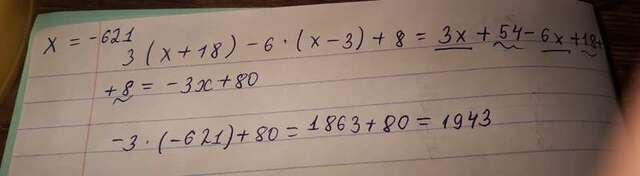 x = -621
3(x+18)-6·(x-3)+8 = 3x+54-6x+18+
+8 = -3x+80
-3·(-621)+80=1863+80=1943